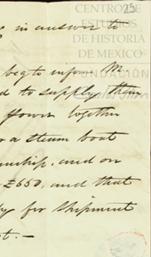 25
CENTRO DE
ESTUDIOS
DE HISTORIA
DE MEXICO
in answer to
beg to inform Mr
d to supply them
flown together
a steam boat
nship, and on
£650, and that
y for shipment
t.—